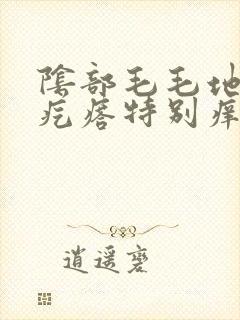 陰部毛毛地
疙瘩特别痒
逍遥塞